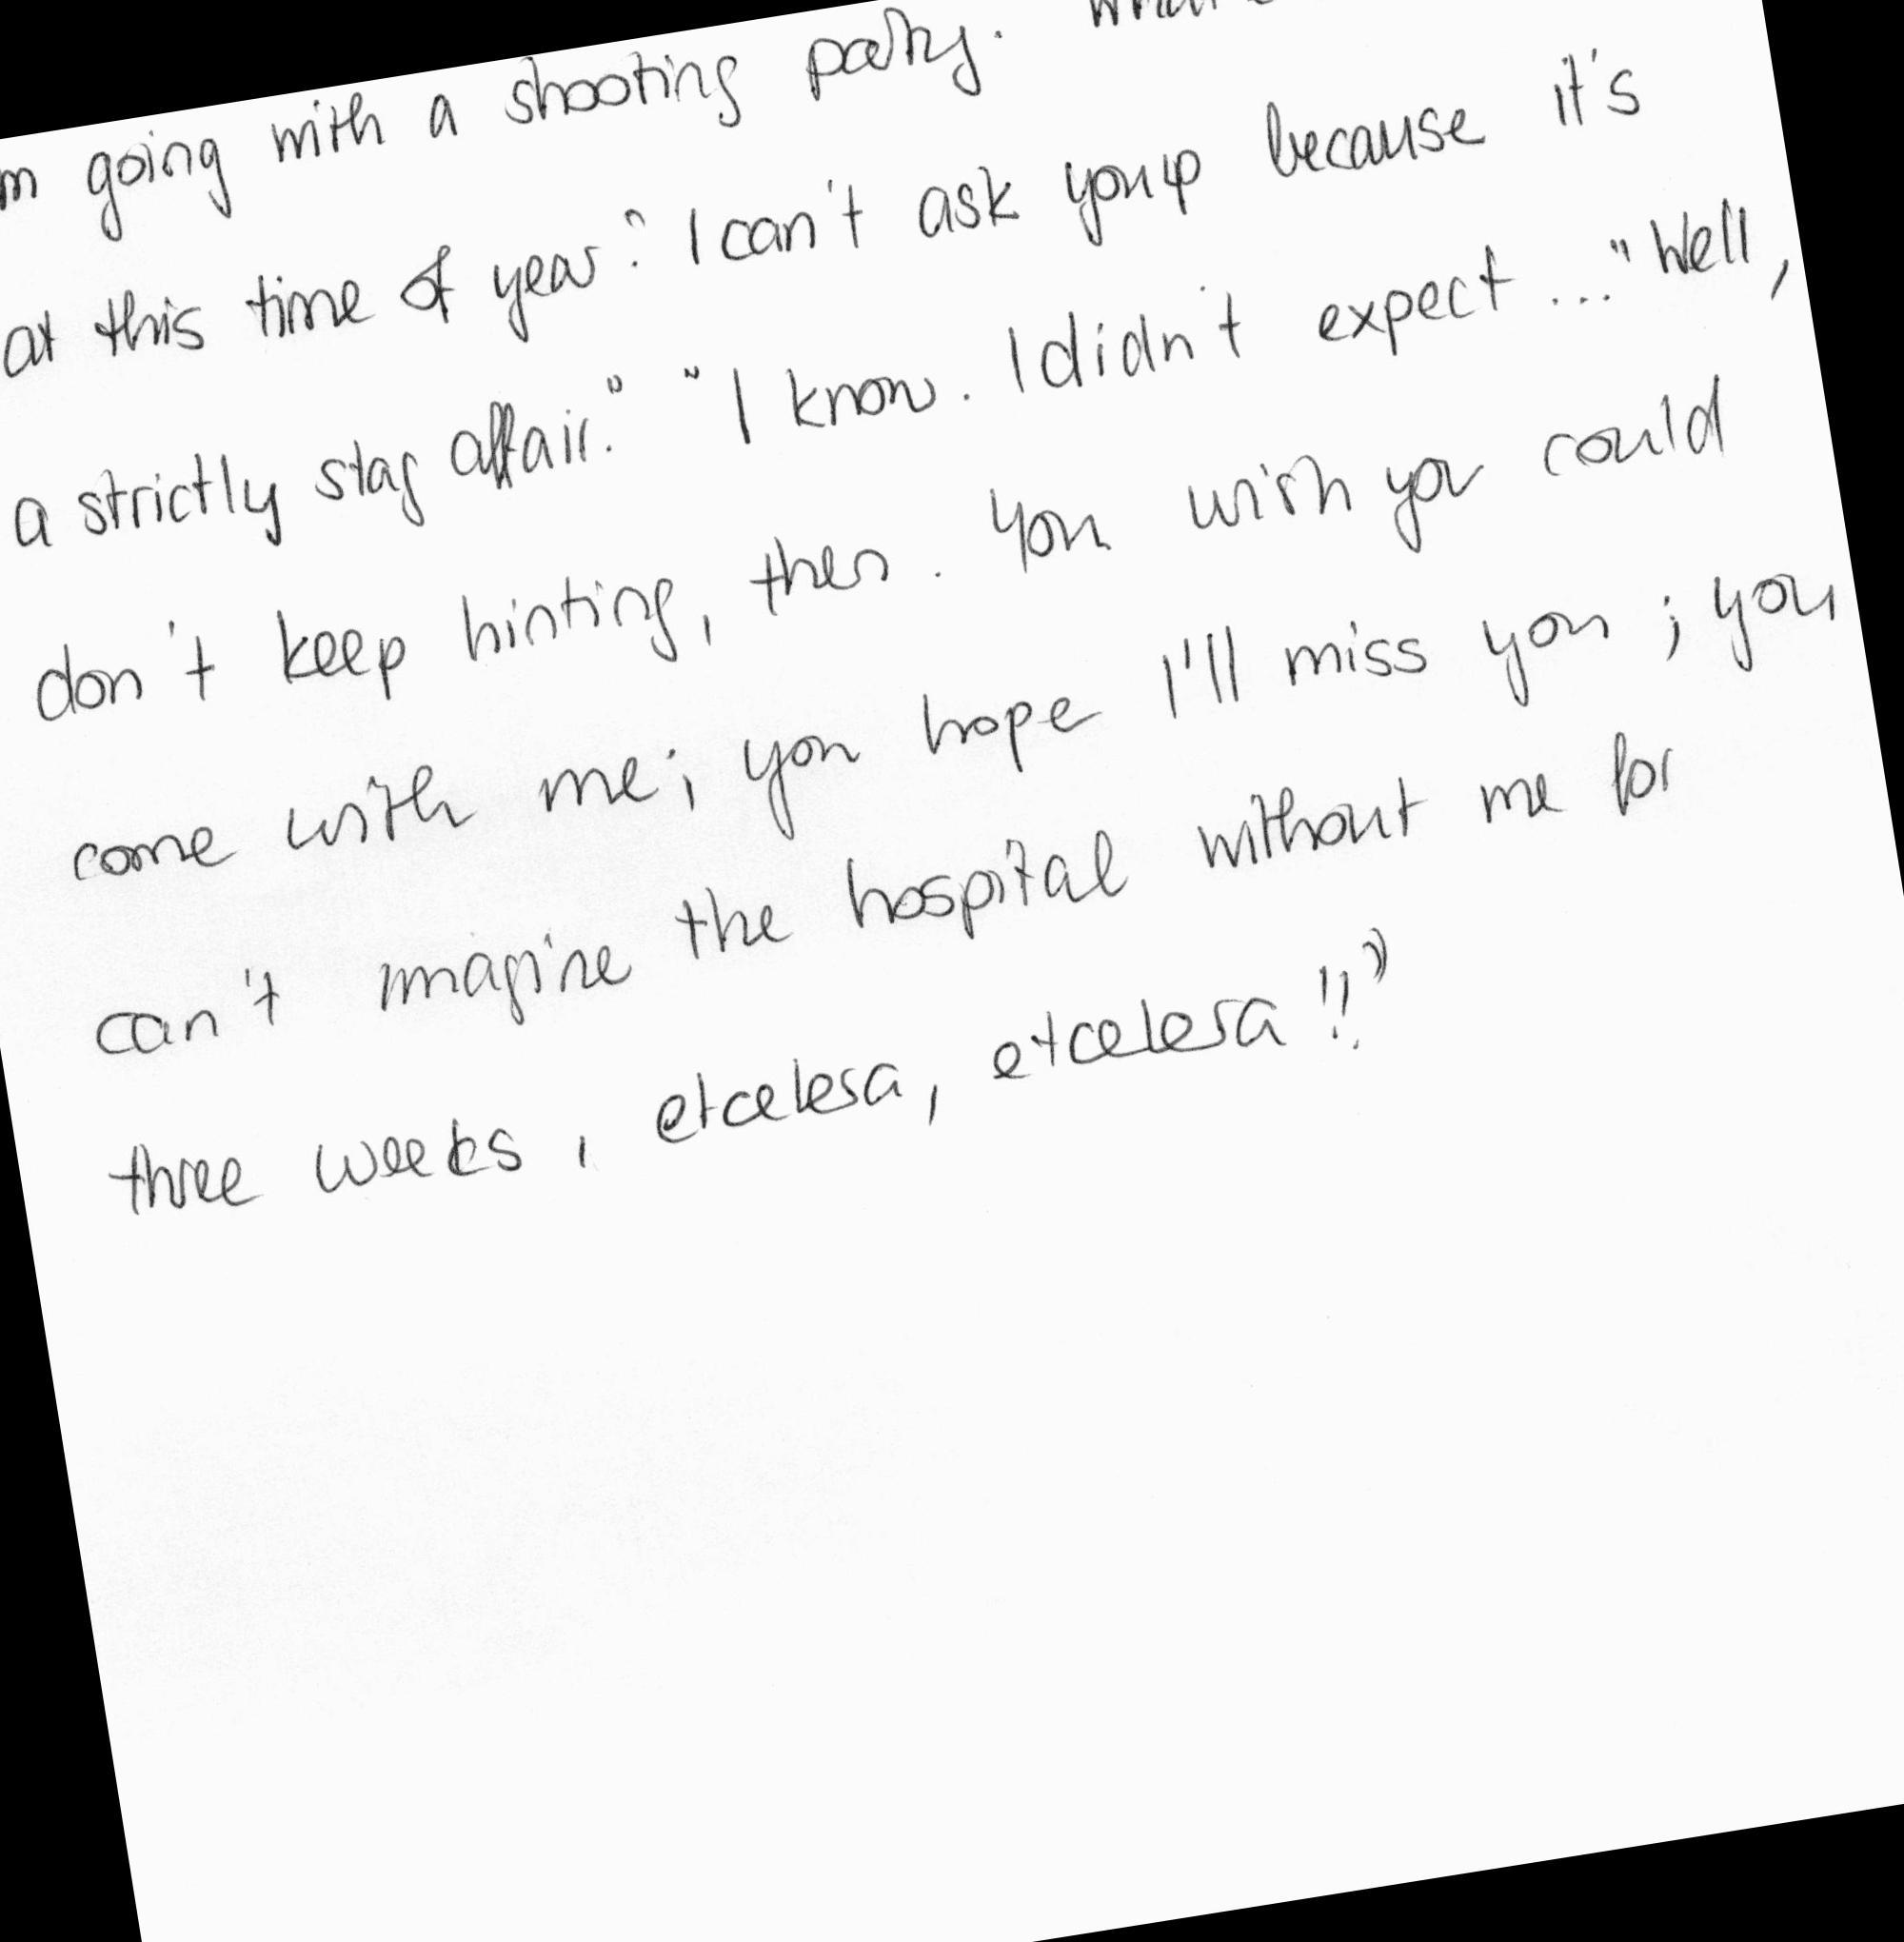 m going with a shooting party.
at this time of year? I can't ask you up because it's
a strictly stag affair." "I know. I didn't expect ... "Well,
don't keep hinting, then. You wish you could
come with me; you hope I'll miss you; you
can't imagine the hospital without me for
three weeks, etcetera, etcetera!!"